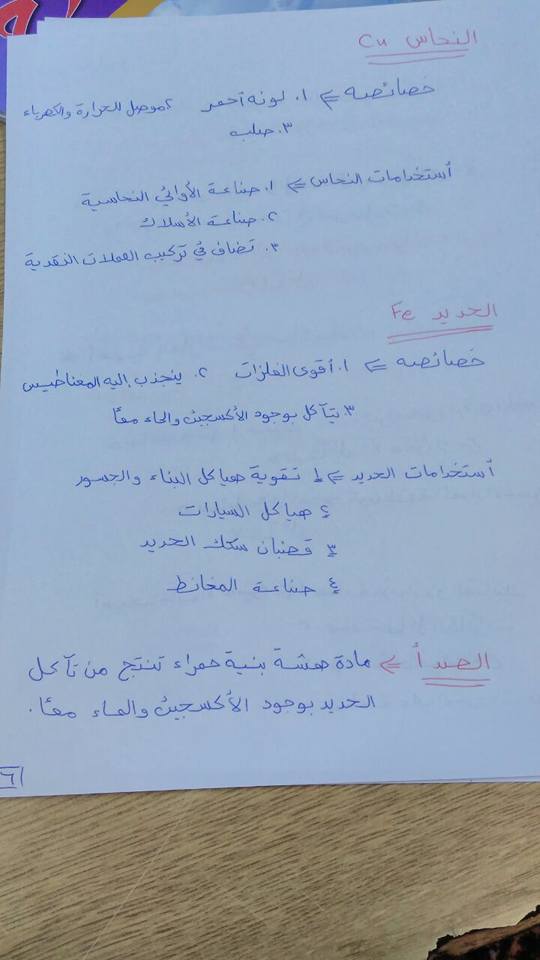 النحاس Cu
خصائصه ⇐ ١. لونه أحمر ٢. موصل للحرارة والكهرباء
٣. صلب
أستخدامات النحاس ⇐ ١. صناعة الأواني النحاسية
٢. صناعة الأسلاك
٣. تضاف في تركيب العملات النقدية
الحديد Fe
خصائصه ⇐ ١. أقوى الفلزات ٢. ينجذب إليه المغناطيس
٣. يتآكل بوجود الأكسجين والماء معًا
أستخدامات الحديد ⇐ ١ تقوية هياكل البناء والجسور
٢ هياكل السيارات
٣ قضبان سكك الحديد
٤ صناعة المغانط
الصدأ ⇐ مادة هشة بنية حمراء تنتج من تآكل
الحديد بوجود الأكسجين والماء معًا.